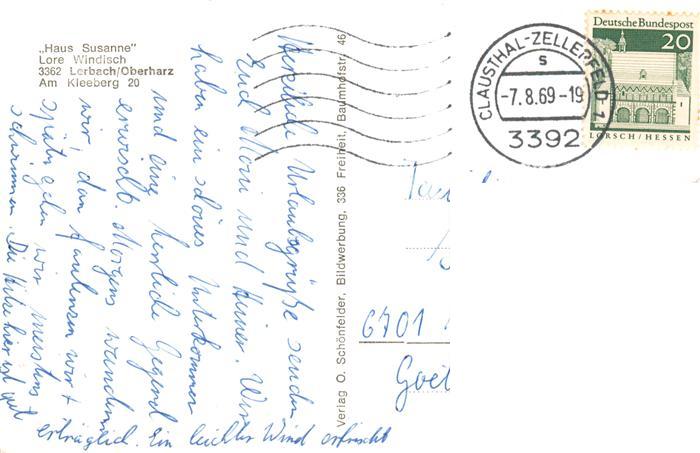 „Haus Susanne"
Lore Windisch
3362 Lerbach/Oberharz
Am Kleeberg 20
Herzliche Urlaubsgrüße senden
Euch Moni und Heiner. Wir
haben ein schönes Unterkommen
und eine herrliche Gegend
erwischt. Morgens wandern
wir, dan faulenzen wir +
später gehen wir meistens
schwimmen. Die Hitze hier ist gut
erträglich. Ein leichter Wind erfrischt
Verlag O. Schönfelder, Bildwerbung, 336 Freiheit, Baumhofstr. 46
CLAUSTHAL-ZELLERFELD 1
s
-7.8.69-19
3392
Deutsche Bundespost
20
LORSCH/HESSEN
6701
Goet